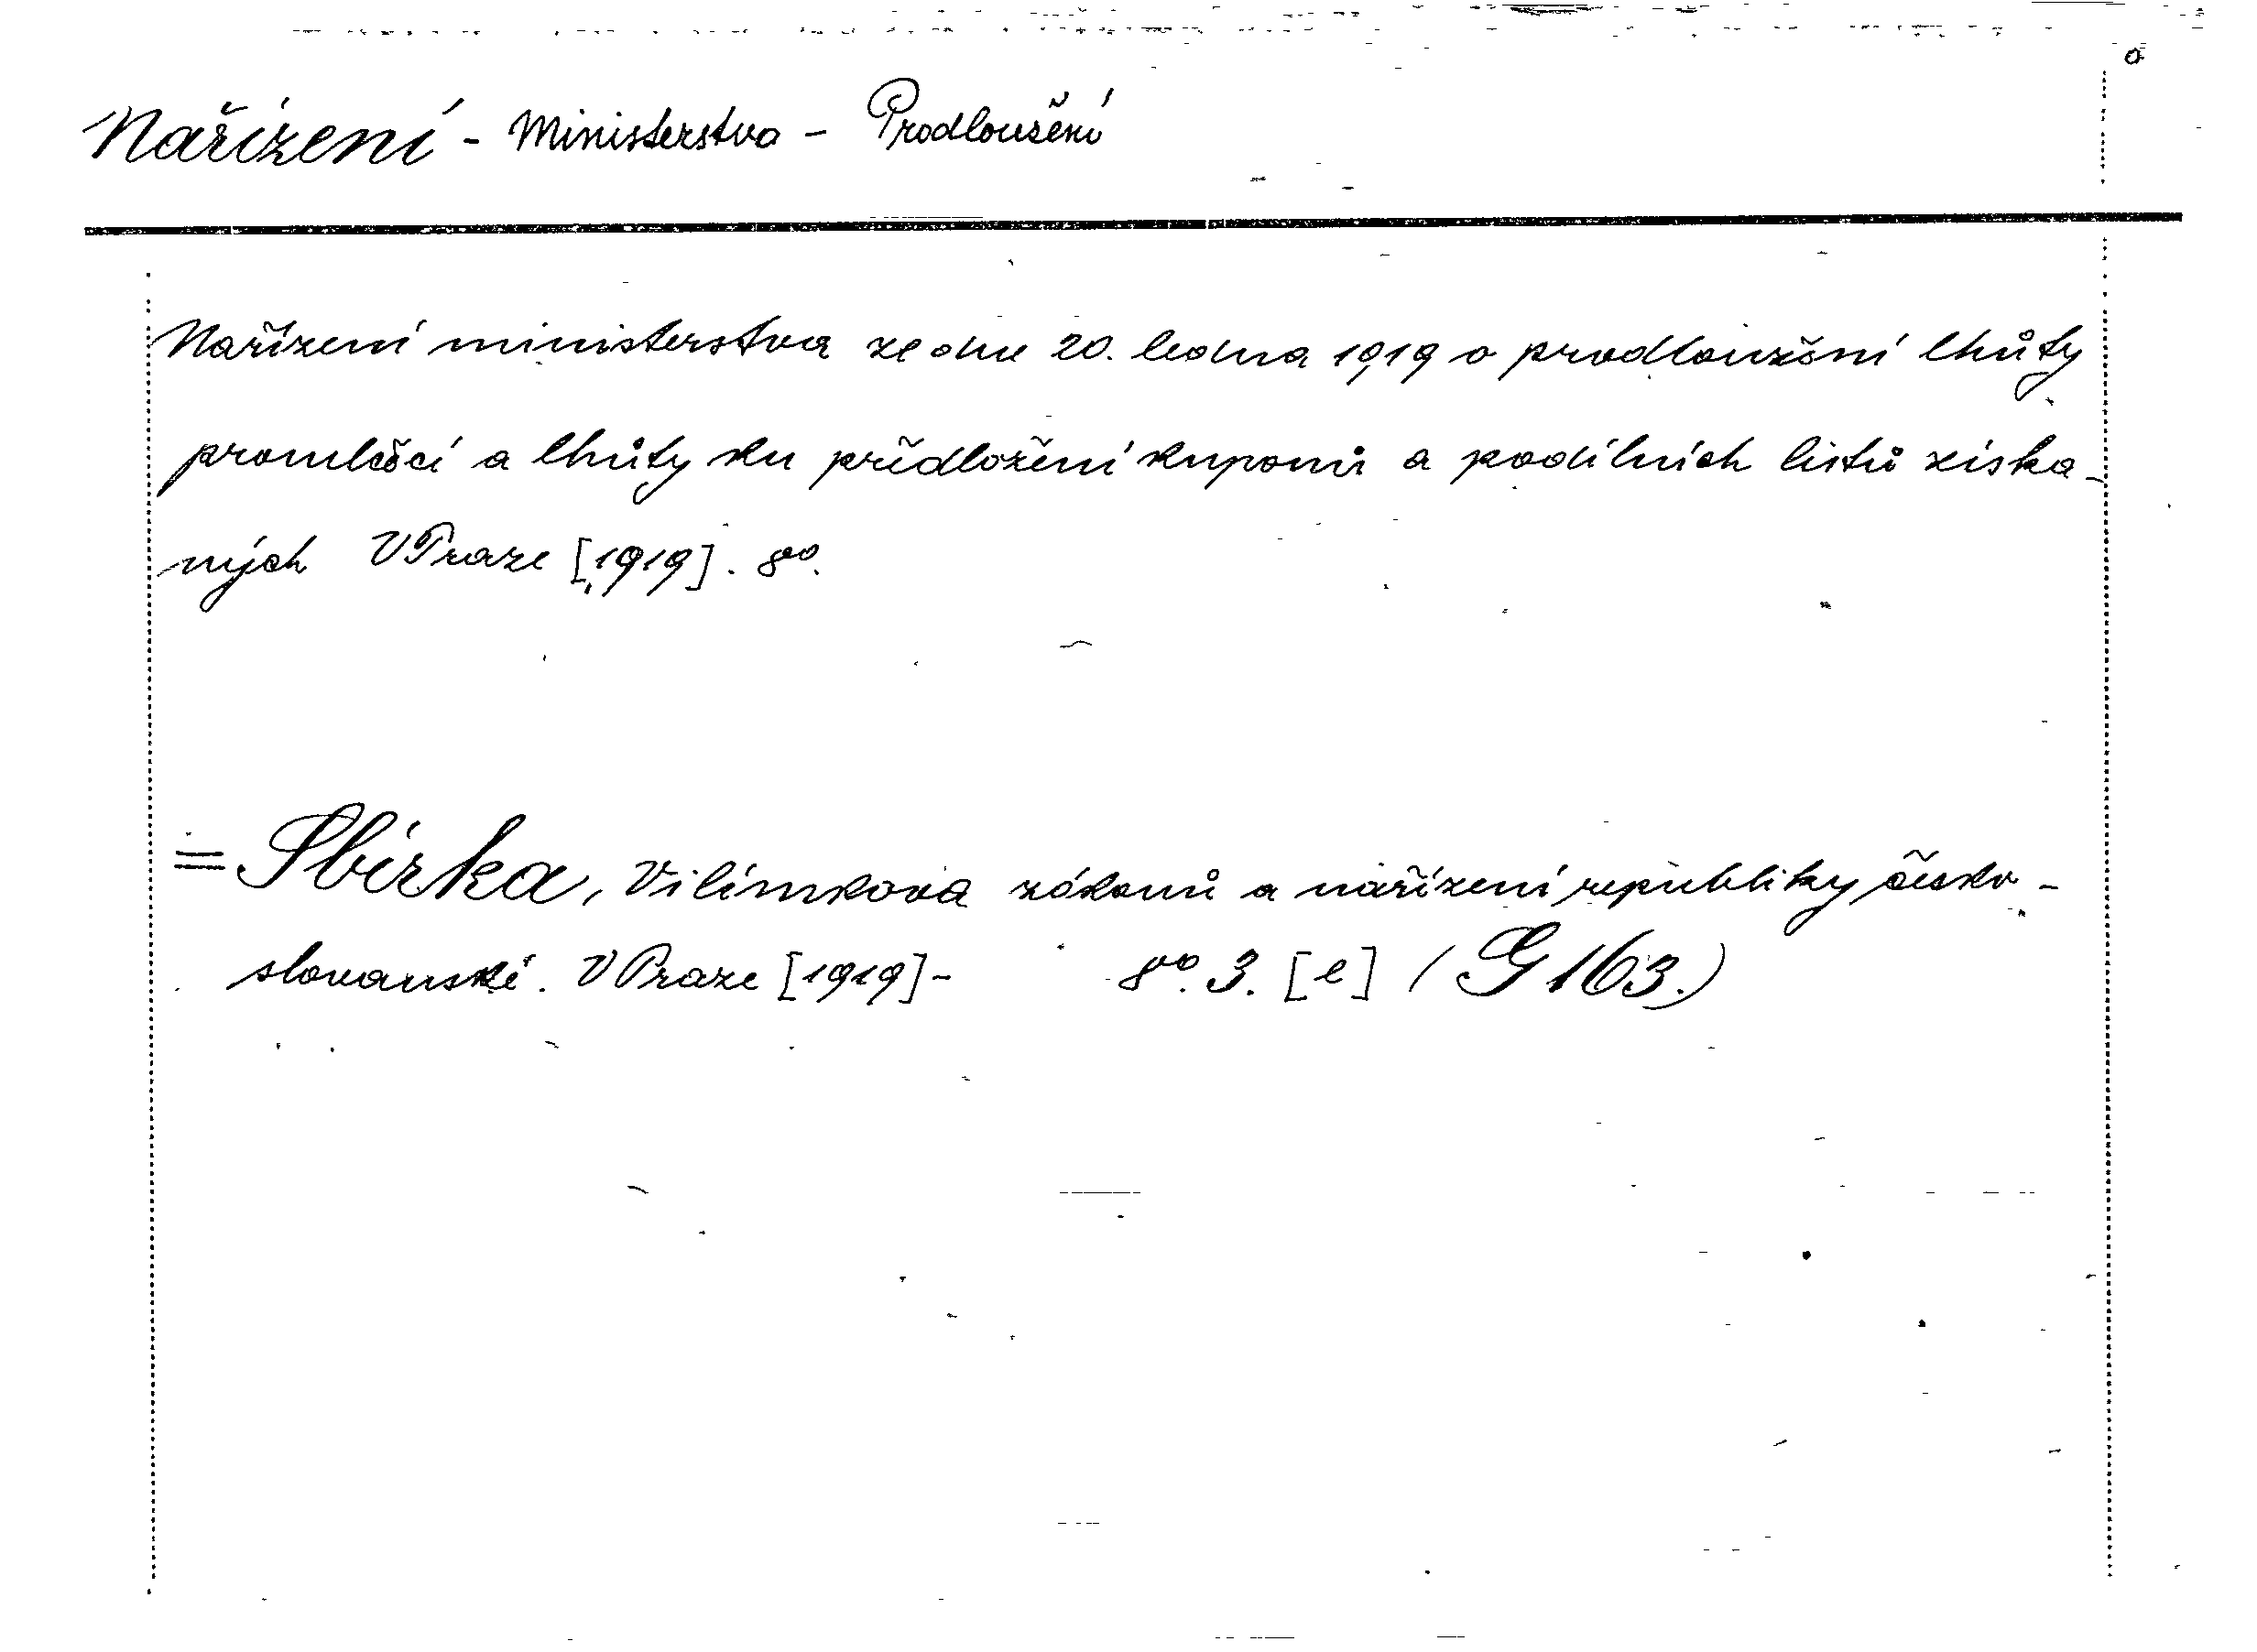 Nařízení - Ministerstva - Prodloužení
Nařízení ministerstva ze dne 20. ledna 1919 o prodloužení lhůty
promlčecí a lhůty ku předložení kuponů a podílních listů získa-
ných V Praze [1919]. 8º.
= Sbírka, Vilímkova zákonů a nařízení republiky česko-
slovanské. V Praze [1919]- 8º. 3. [e] (G 163.)